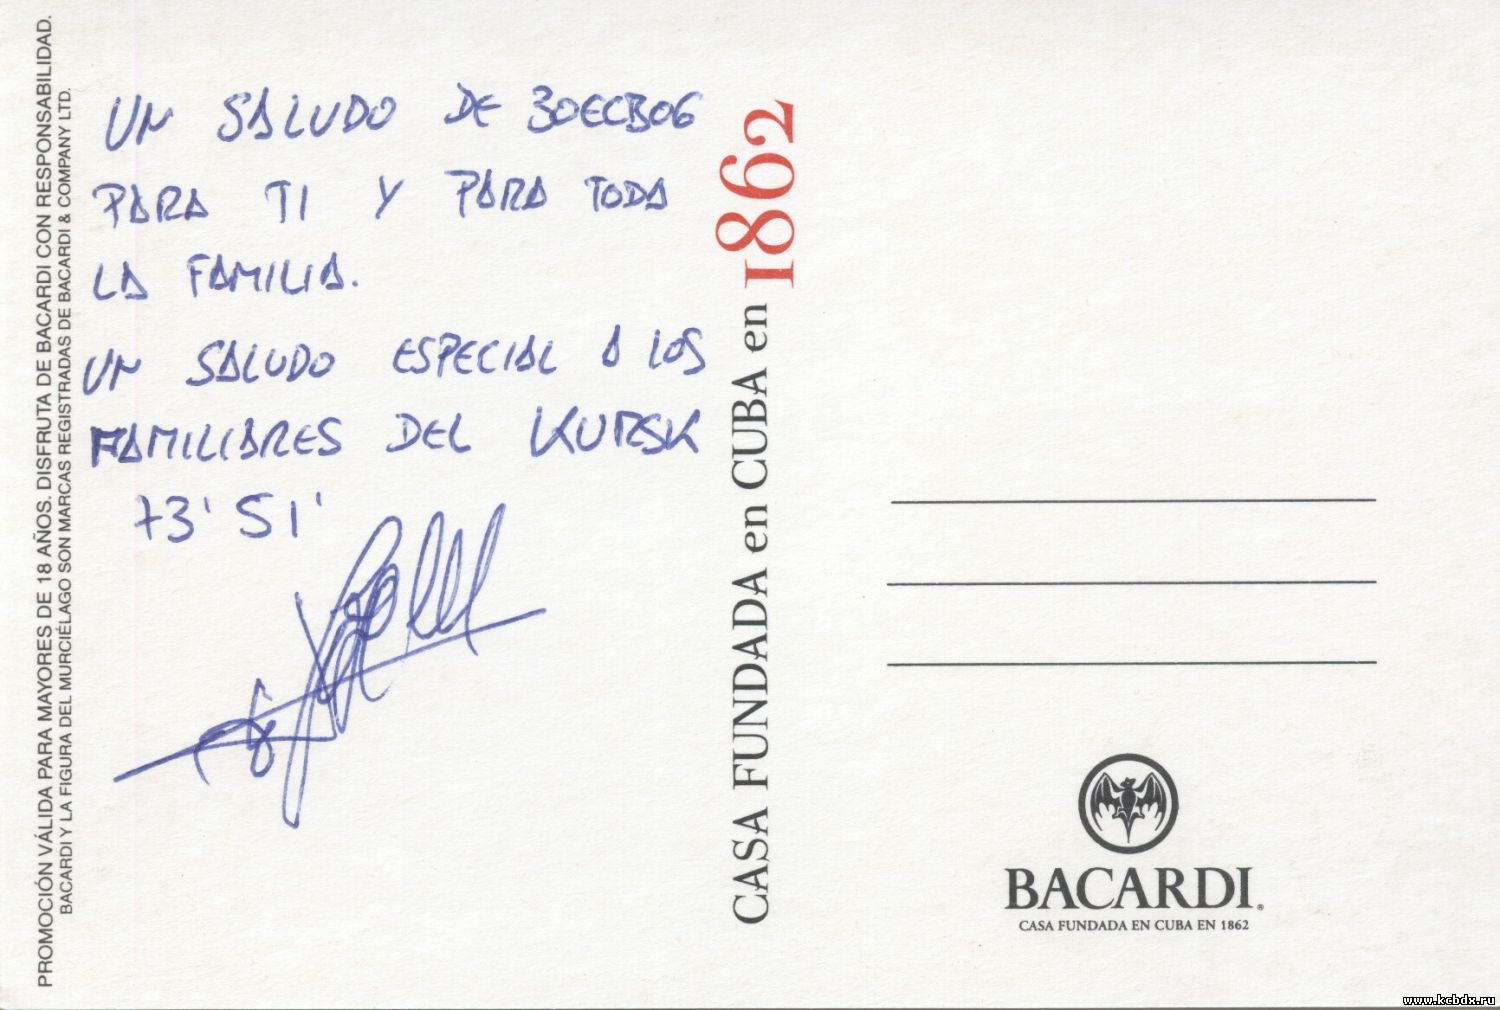 PROMOCIÓN VÁLIDA PARA MAYORES DE 18 AÑOS. DISFRUTA DE BACARDI CON RESPONSABILIDAD.
BACARDI Y LA FIGURA DEL MURCIÉLAGO SON MARCAS REGISTRADAS DE BACARDI & COMPANY LTD.
UN SALUDO DE 30ECB06
PARA TI Y PARA TODA
LA FAMILIA.
UN SALUDO ESPECIAL A LOS
FAMILIARES DEL KURSK
73' 51'
CASA FUNDADA en CUBA en 1862
BACARDI®
CASA FUNDADA EN CUBA EN 1862
www.kcbdx.ru